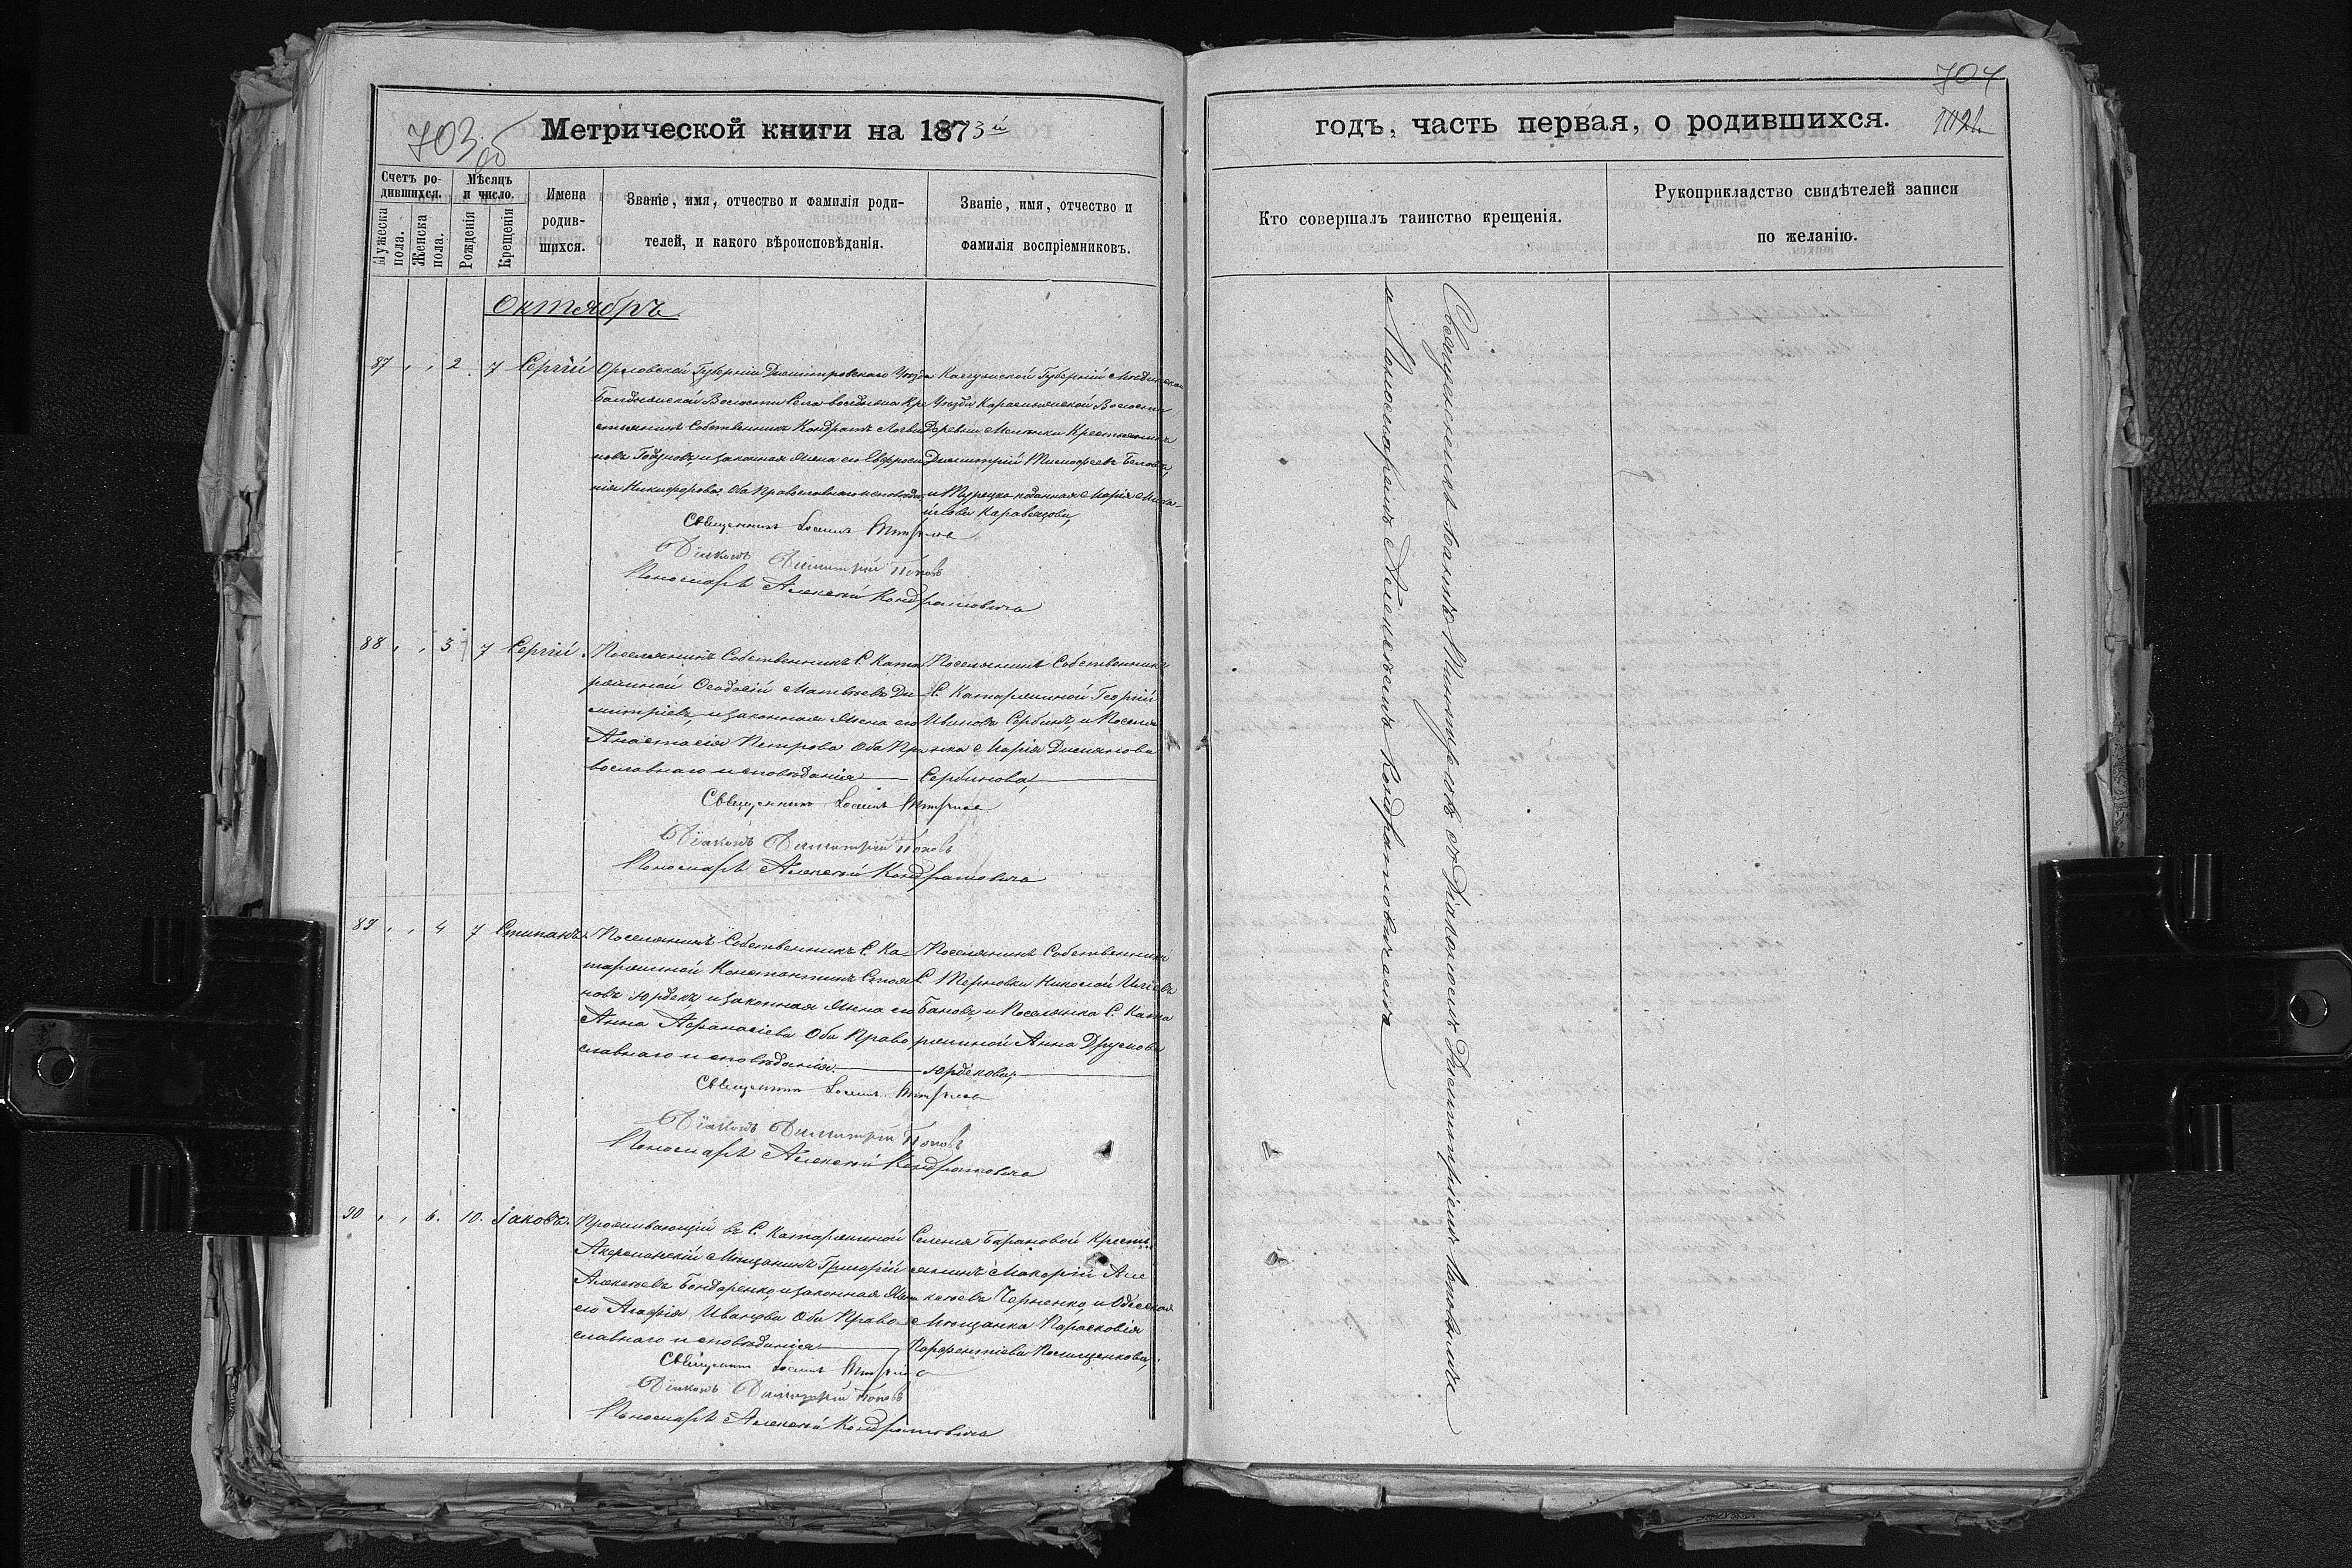 703 об
Метрической книги на 1873й
Счетъ родившихся.
Мѣсяцъ и число.
Мужеска пола.
Женска пола.
Рожденія
Крещенія
Имена родившихся.
Званіе, имя, отчество и фамилія родителей, и какого вѣроисповѣданія.
Званіе, имя, отчество и фамилія воспріемниковъ.
Октябрь
87 2 7 Сергій
Орловской Губерніи Димитровскаго Уѣзда
Волости Села Кре
стьянинъ Собственникъ Кондратъ Логви
новъ Годуновъ, и законная Жена его Евфроси
нія Никифорова Оба Православнаго исповѣда
Калужской Губерніи Мединскаго
Уѣзда Волости
Деревни Крестьянинъ
Димитрій Тимофеевъ Бѣловъ,
и Турецко поданная Марія Миха-
йлова
Священникъ
Діаконъ Димитрій Поповъ
Пономарь Алексей Кондратовичъ
88 3 7 Сергій
Поселянинъ Собственникъ С. Ката
ржиной Ѳеодосій Матвѣевъ Ди
митріевъ, и законная Жена его
Анастасія Петрова Оба Пра
вославнаго исповѣданія
Поселянинъ Собственникъ
С. Катаржиной Георгій
Ивановъ Сербинъ, и Поселя
нка Марія Димянова
Сербинова,
Священникъ
Діаконъ Димитрій Поповъ
Пономарь Алексей Кондратовичъ
89 4 7 Стипанъ
Поселянинъ Собственникъ С. Ка-
таржиной Константинъ Стоя
новъ Юрдекъ и законная Жена его
Анна Афанасіева Оба Право
славнаго исповѣданія.
Поселянинъ Собственникъ
С. Терновки Николай Иліевъ
Бановъ, и Поселянка С. Ката
ржиной Анна Друмова
Юрдекова,
Священникъ
Діаконъ Димитрій Поповъ
Пономарь Алексей Кондратовичъ
90 6. 10. Іаковъ.
Проживающій въ С. Катаржиной
Акерманскій Мещанинъ Григорій
Алексѣевъ Бондаренко, и законная Жена
его Агафія Иванова Оба Право
славнаго исповѣданія
Селенія Барановой Кресть
янинъ Макарій Але
ксѣевъ Черненко, и Одесская
Мѣщанка Парасковія
Парфентіева
Священникъ
Діаконъ Димитрій Поповъ
Пономарь Алексей Кондратовичъ
704
годъ, часть первая, о родившихся.
Кто совершалъ таинство крещенія.
Рукоприкладство свидѣтелей записи по желанію.
Священникъ съ Діакономъ Димитріемъ Поповымъ
и Пономаремъ Алексѣемъ Кондратовичемъ